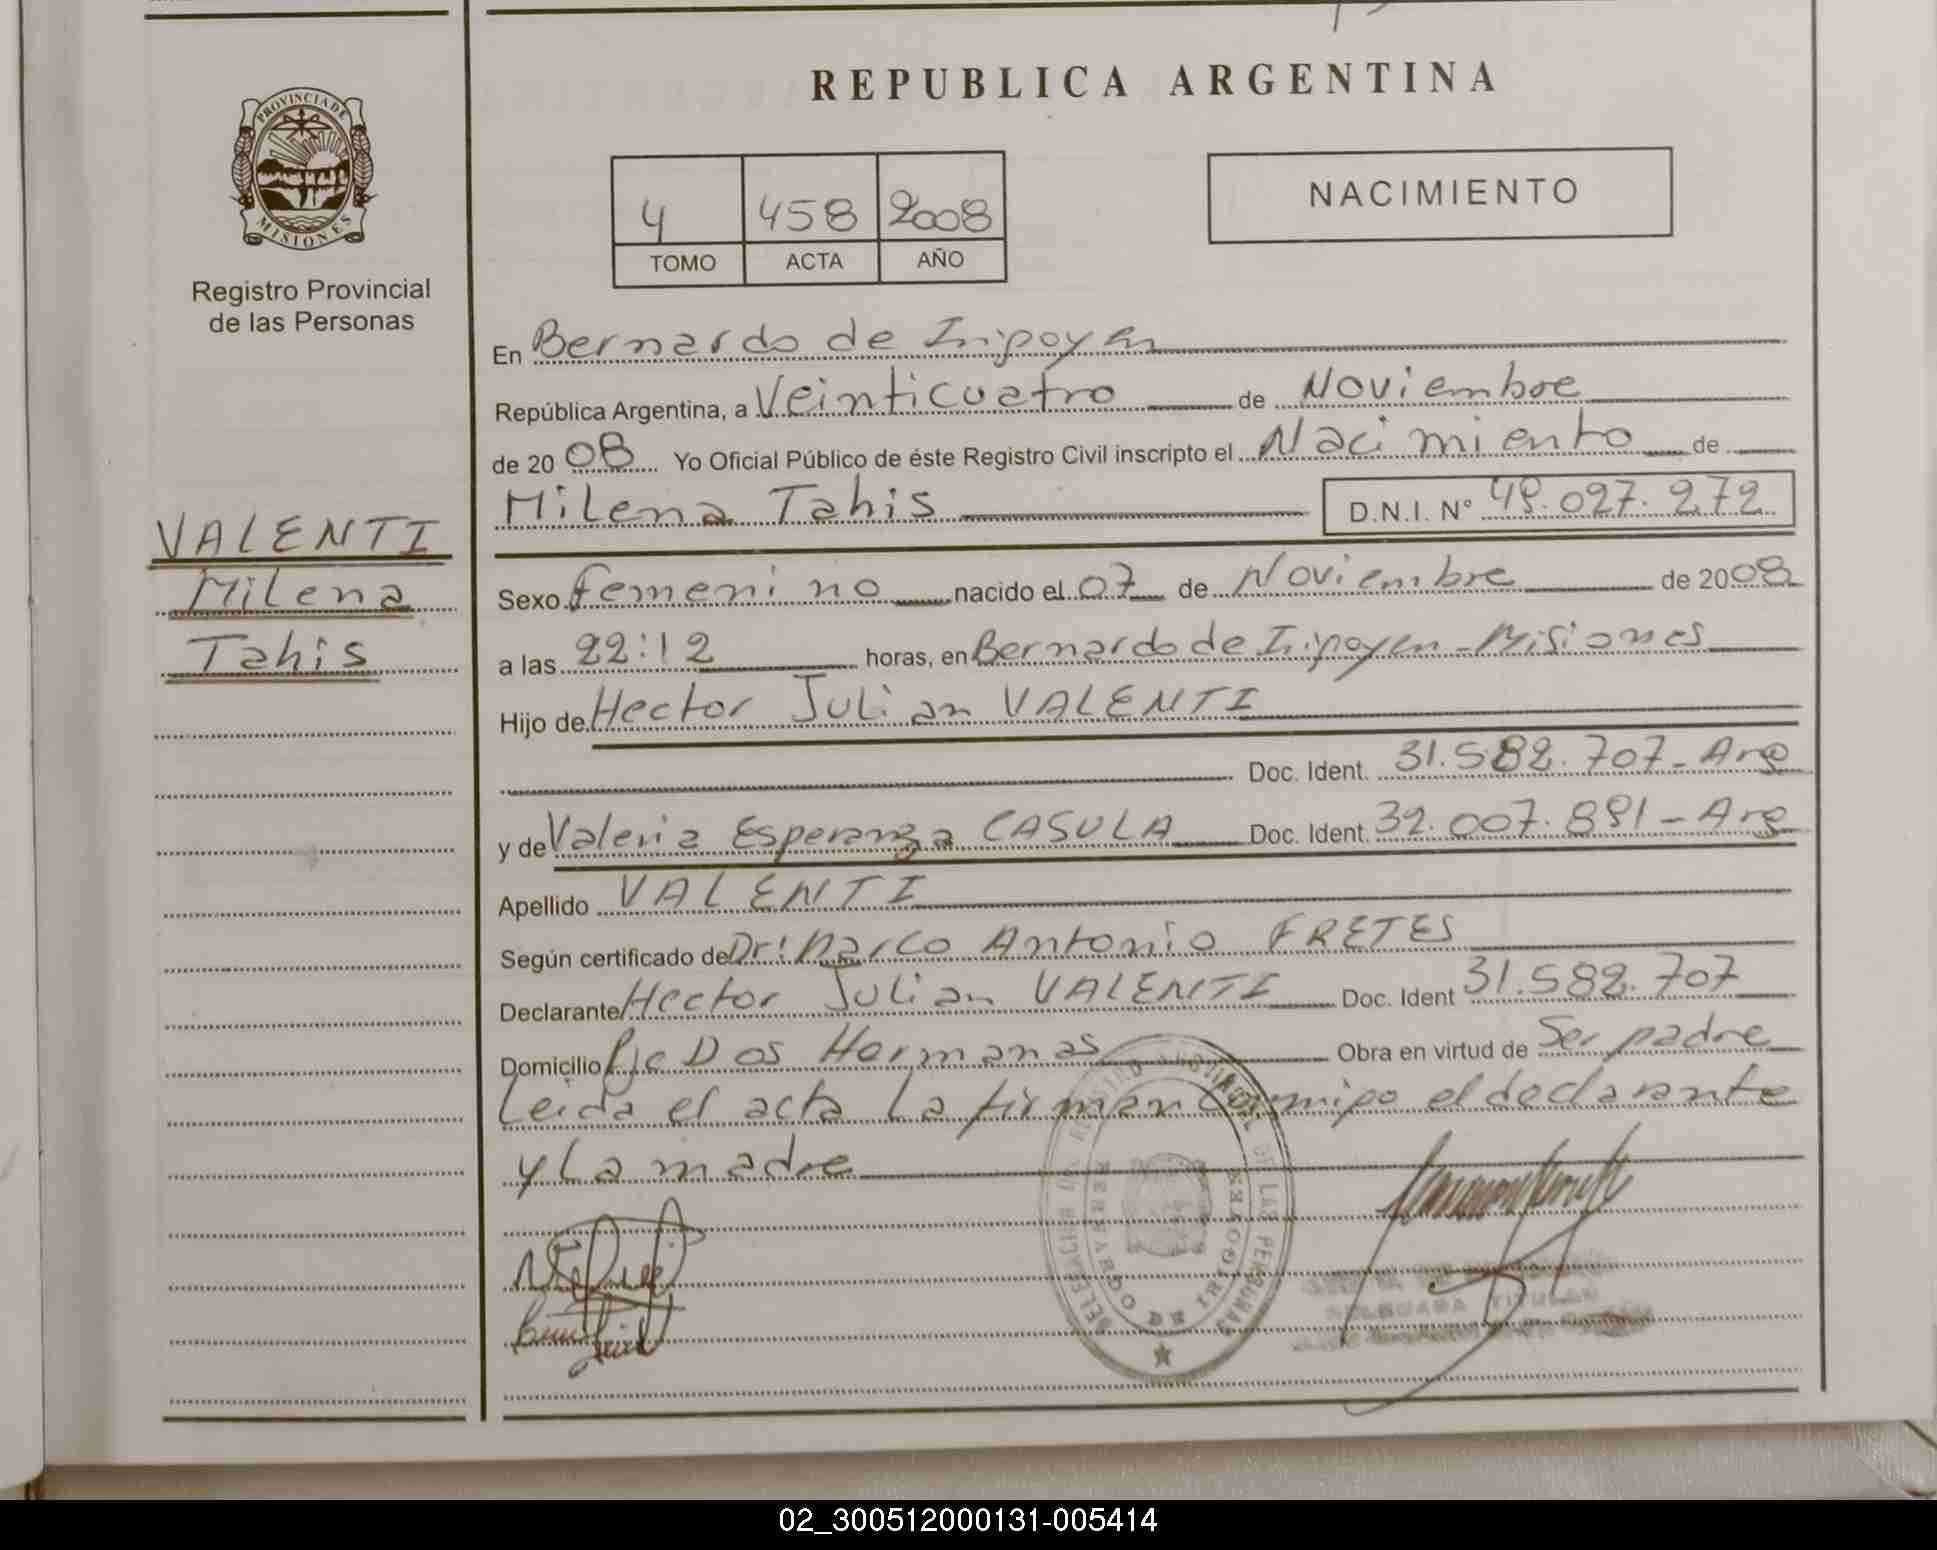 REPUBLICA ARGENTINA
PROVINCIA DE
MISIONES
Registro Provincial
de las Personas
4 458 2008
TOMO ACTA AÑO
NACIMIENTO
VALENTI
Milena
Tahis
En Bernardo de Iripoyen
República Argentina, a Veinticuatro de Noviembre
de 2008 Yo Oficial Público de éste Registro Civil inscripto el Nacimiento de
Milena Tahis D.N.I. Nº 49.027.272
Sexo Femenino nacido el 07 de Noviembre de 2008
a las 22:12 horas, en Bernardo de Iripoyen - Misiones
Hijo de Hector Julian VALENTI
Doc. Ident. 31.582.707 - Arg
y de Valeria Esperanza CASULA Doc. Ident. 32.007.891 - Arg
Apellido VALENTI
Según certificado de Dr: Marco Antonio FRETES
Declarante Hector Julian VALENTI Doc. Ident 31.582.707
Domicilio Pje Dos Hermanas Obra en virtud de Ser padre
Leida el acta la firman conmipo el declarante
y la madre
DELEGACION DEL REGISTRO PROVINCIAL DE LAS PERSONAS
BERNARDO DE IRIGOYEN
TITULAR
02_300512000131-005414